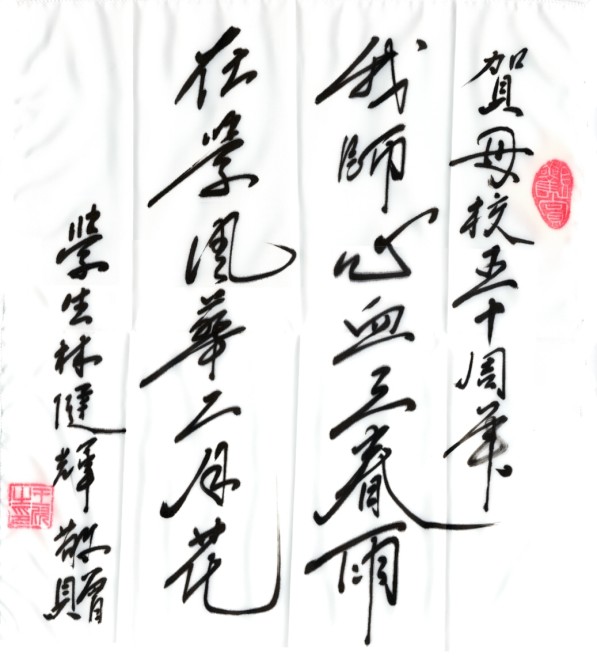 賀母校五十周年
我師心血三春雨
在學風華二月花
學生林健輝敬贈